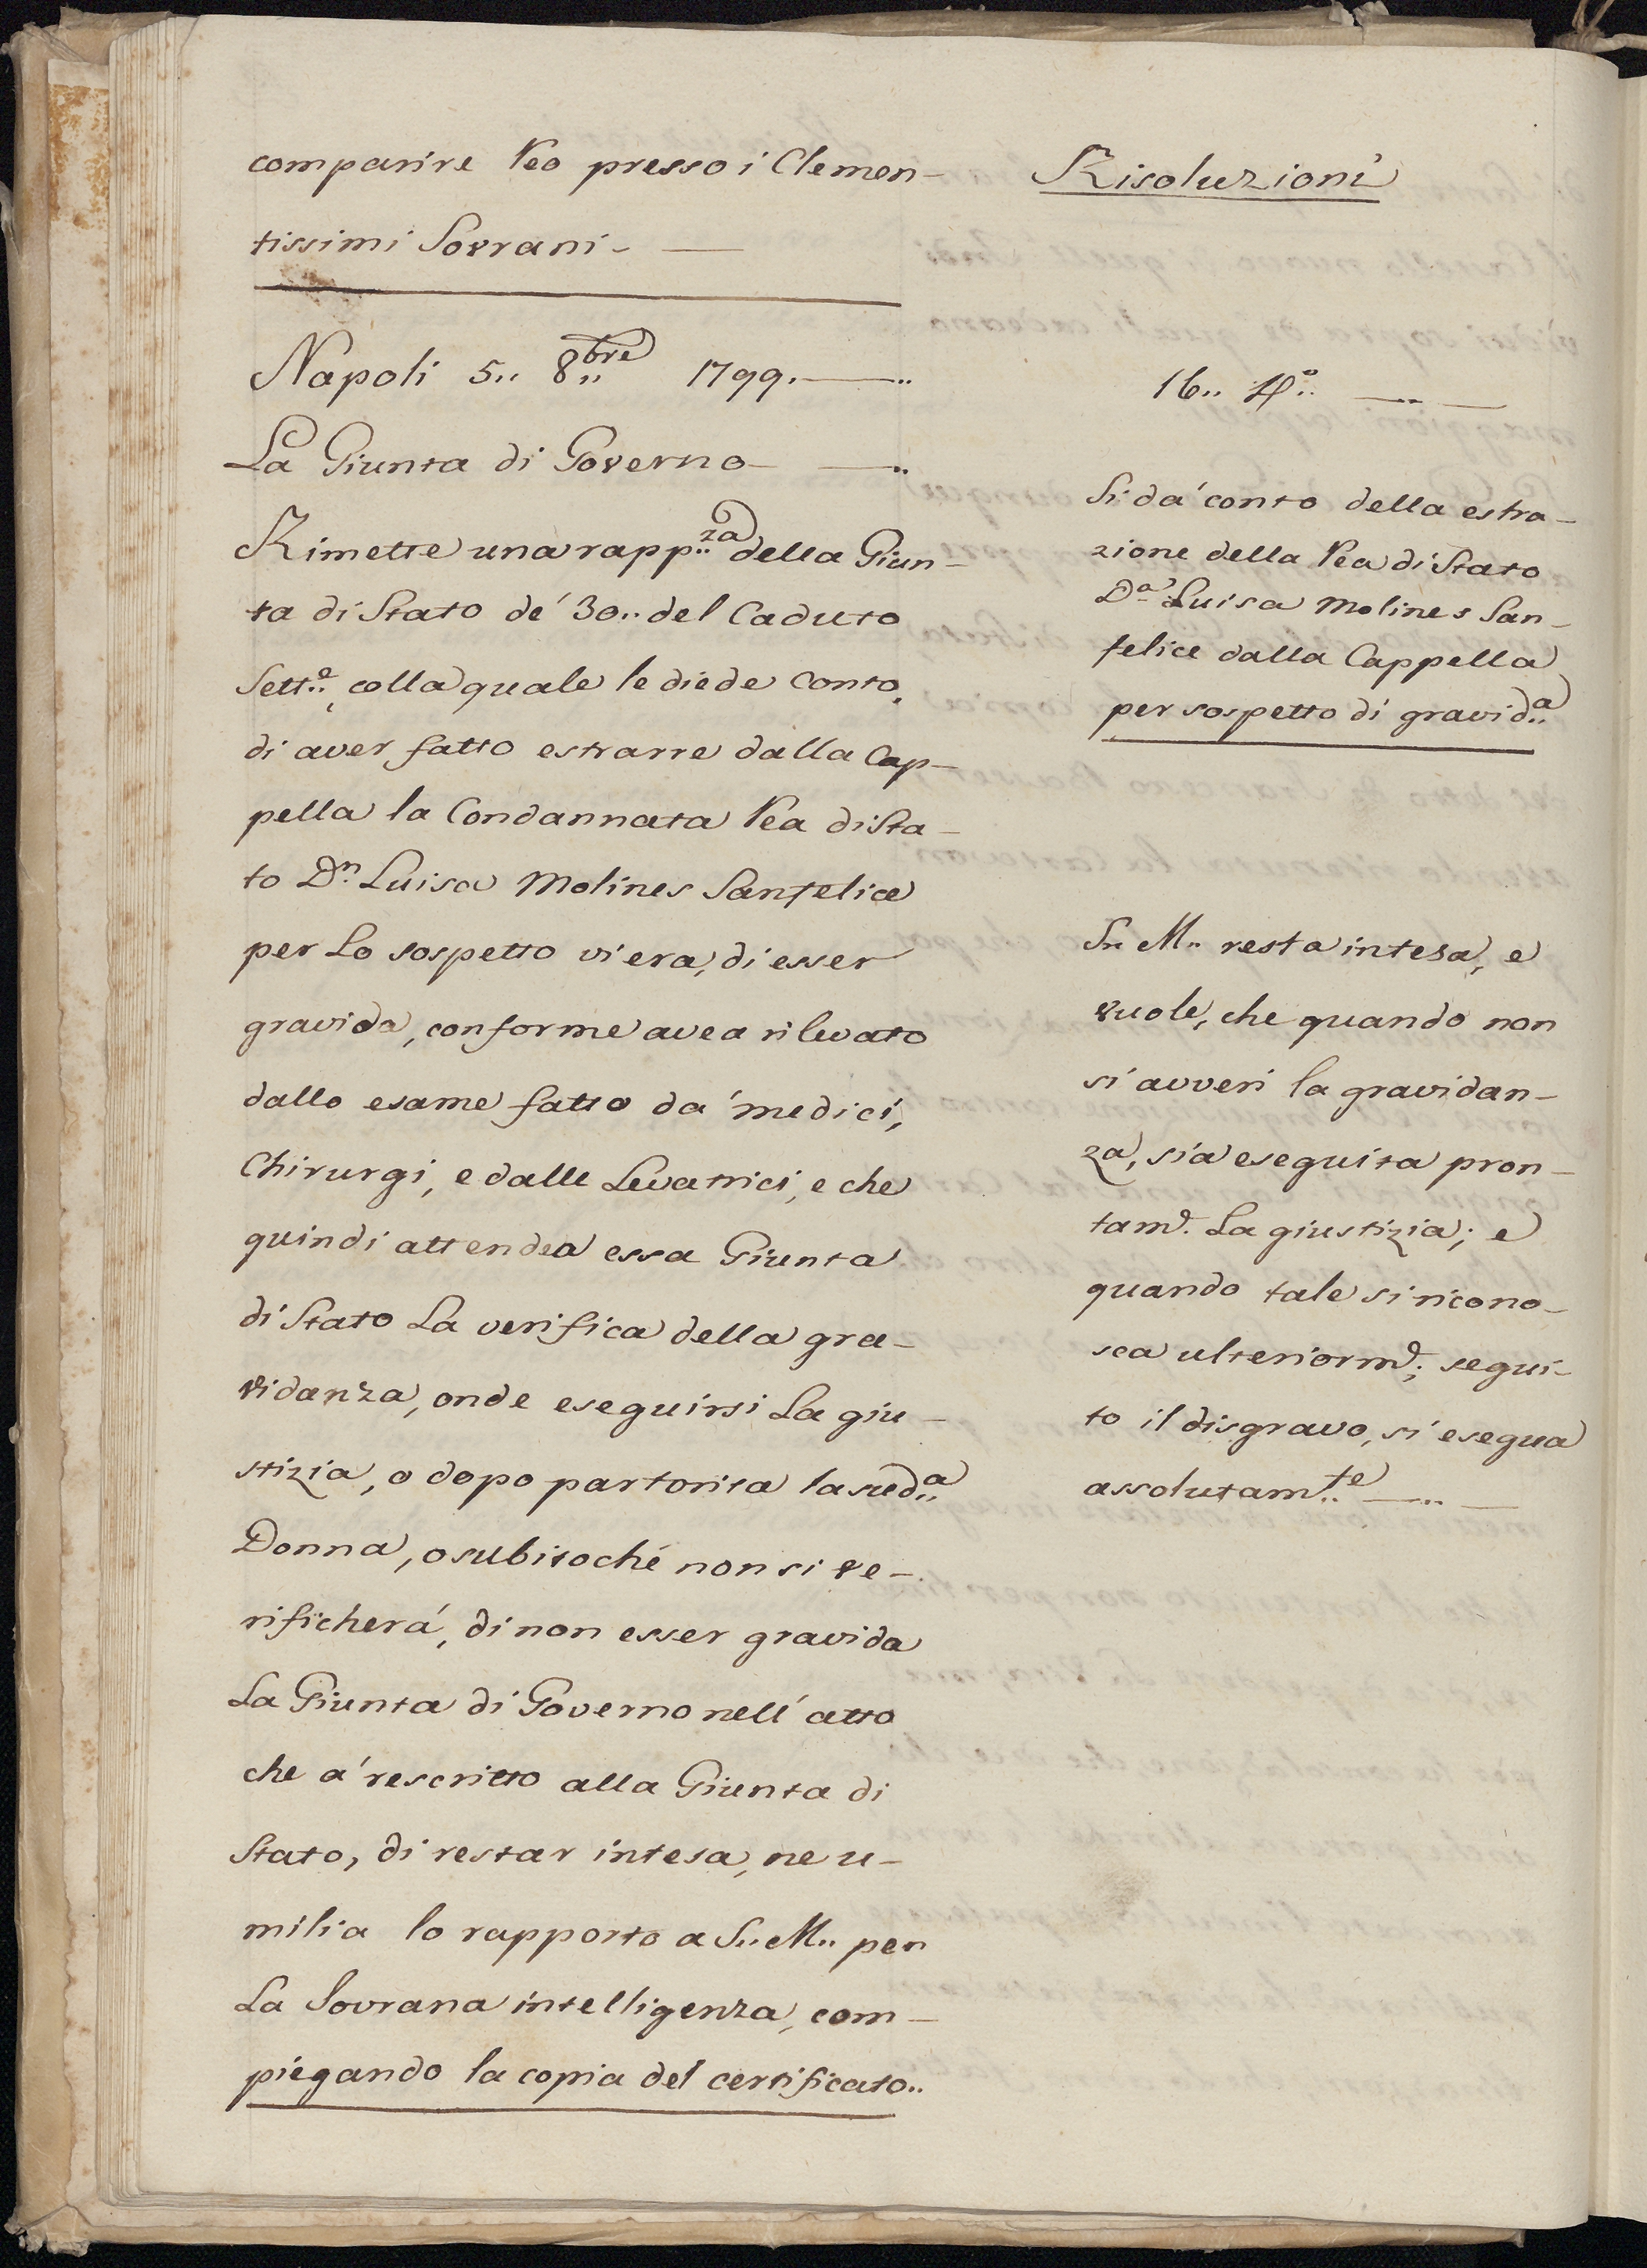 comparire Reo presso i Clemen-
tissimi Sovrani-
Napoli 5.. 8..bre 1799.
La Giunta di Governo
Rimette una rapp..za della Giun-
ta di Stato de' 30.. del Caduto
Sett..e, colla quale le diede conto,
di aver fatto estrarre dalla Cap-
pella la Condannata Rea di Sta-
to Dn. Luisa Molines Sanfelice
per Lo sospetto vi era, di esser
gravida, conforme avea rilevato
dallo esame fatto da' medici,
Chirurgi, e dalle Levatrici, e che
quindi attendea essa Giunta
di Stato La verifica della gra-
vidanza, onde eseguirsi La giu-
stizia, o dopo partorita la sud..a
Donna, o subitoché non si ve-
rificherá, di non esser gravida
La Giunta di Governo nell' atto
che a' rescritto alla Giunta di
Stato, di restar intesa, ne u-
milia lo rapporto a S.. M.. per
La Sovrana intelligenza, com-
piegando la copia del certificato..
Risoluzioni
16.. do..
Si dá conto della estra-
zione della Rea di Stato
Da. Luisa Molines San-
felice dalla Cappella
per sospetto di gravid..a
S.. M.. resta intesa, e
vuole, che quando non
si avveri la gravidan-
za, sia eseguita pron-
tame. La giustizia; e
quando tale si ricono-
sca ulteriorme; segui-
to il disgravo, si esegua
assolutam..te